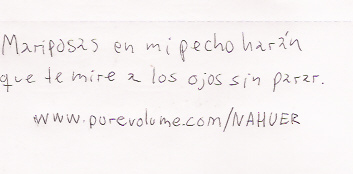 Mariposas en mi pecho harán
que te mire a los ojos sin parar.
www.purevolume.com/NAHUER